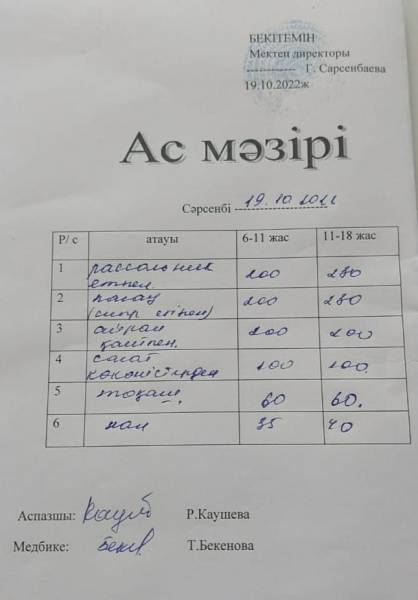 БЕКІТЕМІН
Мектеп директоры
------------ Г. Сарсенбаева
19.10.2022ж
Ас мәзірі
Сәрсенбі 19.10.2022
Р/ с атауы 6-11 жас 11-18 жас
1 рассольник етпен 200 250
2 палау (сиыр етінен) 200 250
3 айран қантпен 200 200
4 салат көкөністерден 100 100
5 тоқаш 60 60.
6 нан 35 40
Аспазшы: Р.Каушева
Медбике: Т.Бекенова